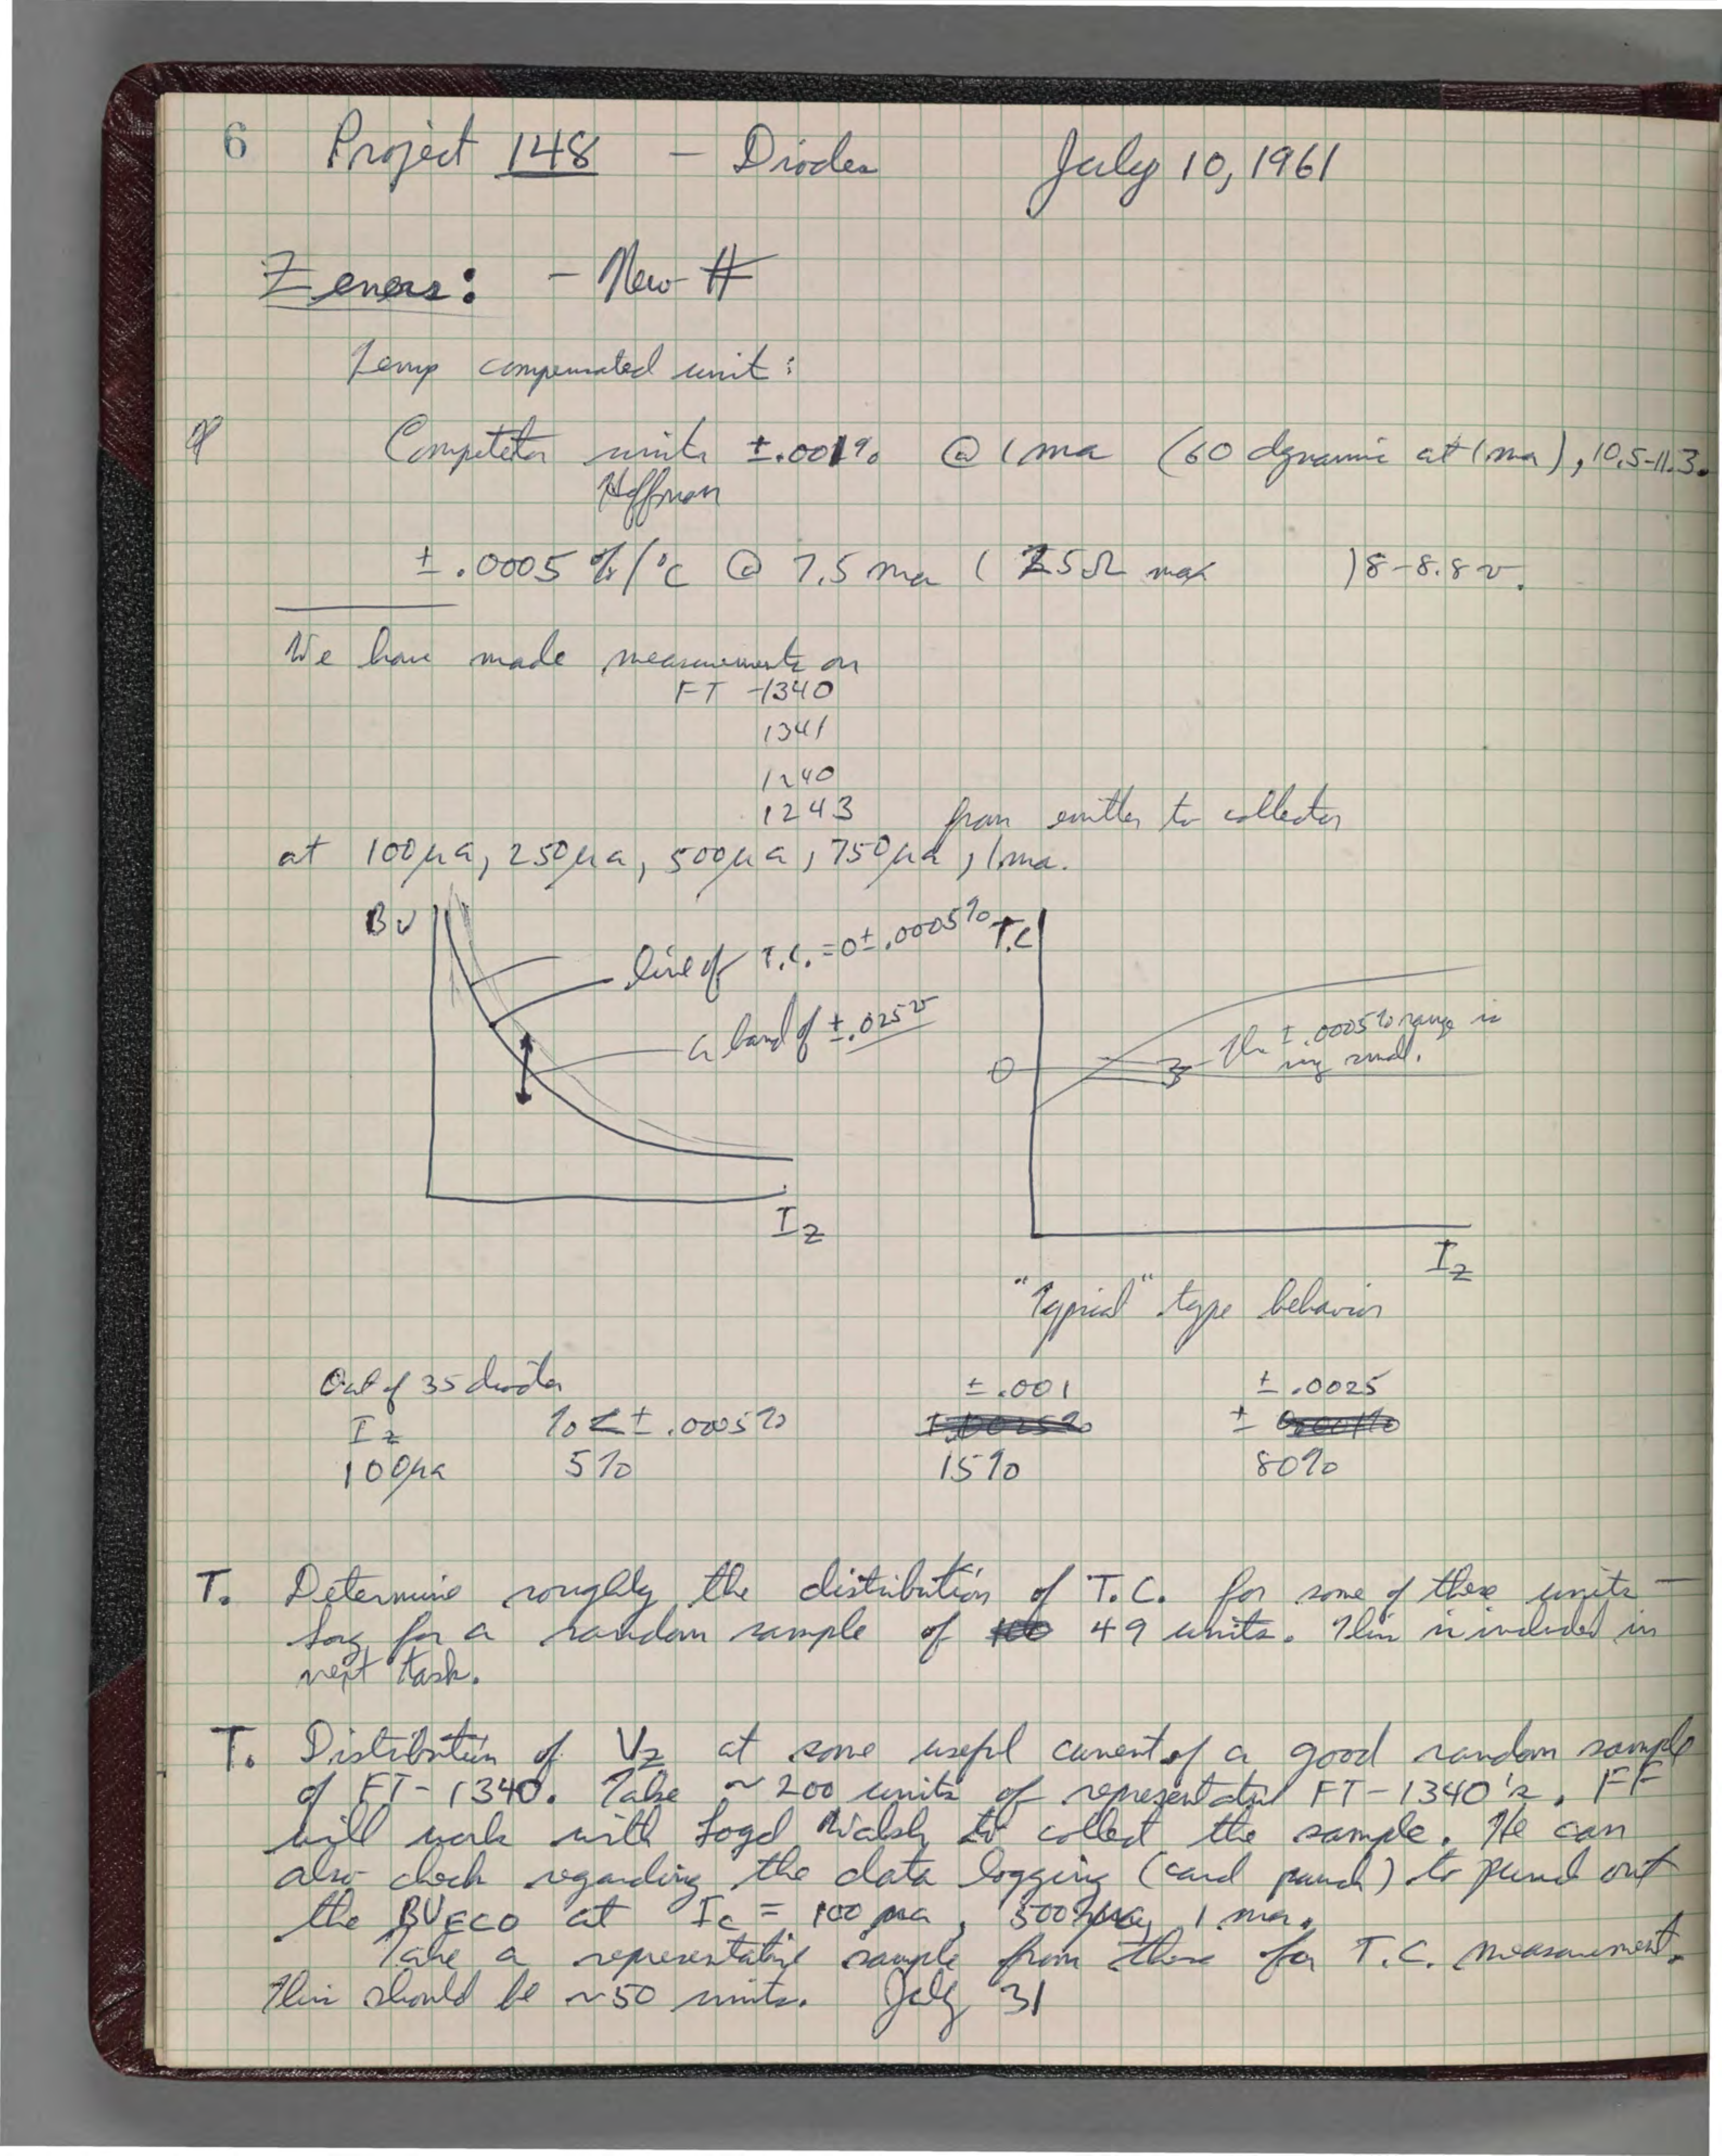 6 Project 148 – Diodes July 10, 1961
Zeners: – New #
Temp compensated unit:
Competitor units ±.001% @ 1 ma (60 dynamic at 1 ma), 10.5-11.3.
Hoffman
± .0005 %/°C @ 7.5 ma ( 25Ω max ) 8-8.8 v.
We have made measurements on
FT -1340
1341
1240
1243 from emitter to collector
at 100μa, 250μa, 500μa, 750μa, 1ma.
BV
line of T.C. = 0±.0005%
a band of ±.025v
Iz
T.C
0
The ±.0005% range is
very small.
Iz
"Typical" type behavior
Out of 35 diodes ± .001 ± .0025
Iz % < ± .0005% ±
100μa 5% 15% 80%
T. Determine roughly the distribution of T.C. for some of these units –
Say for a random sample of 49 units. This is included in
next task.
T. Distribution of Vz at some useful current of a good random sample
of FT-1340. Take ~ 200 units of representative FT-1340's. FF
will work with Walsh to collect the sample. He can
also check regarding the data logging (card punch) to punch out
the BVECO at Ic = 100 μa, 500 μa, 1 ma.
Take a representative sample from these for T.C. measurement.
This should be ~50 units. July 31